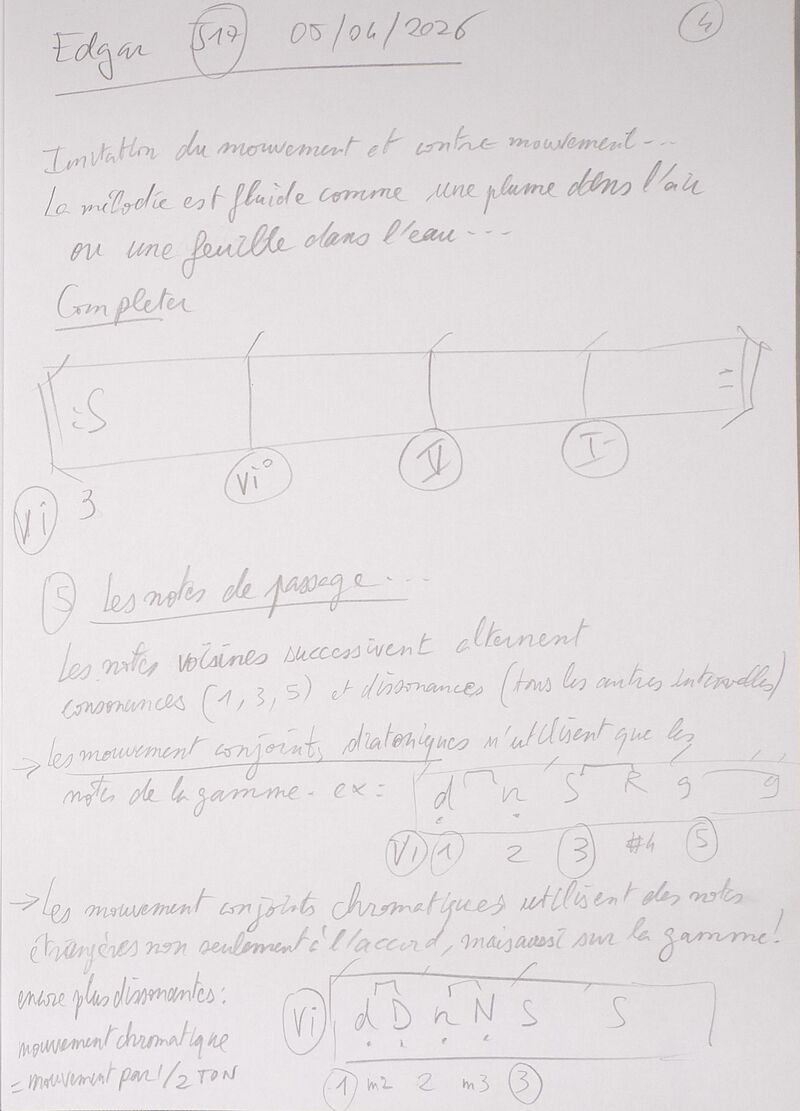 Edgar S17 05/04/2026 4
Imitation du mouvement et contre mouvement...
La mélodie est fluide comme une plume dans l'air
ou une feuille dans l'eau...
Completer
:S =
Vi 3 Vi° V I-
5 Les notes de passage...
Les notes voisines successivent alternent
consonances (1, 3, 5) et dissonances (tous les autres intervalles)
→ Les mouvement conjoints diatoniques n'utilisent que les
notes de la gamme. ex =
d n S R g g
Vi 1 2 3 #4 5
→ Les mouvement conjoints chromatiques utilisent des notes
étrangères non seulement à l'accord, mais aussi sur la gamme!
encore plus dissonantes:
mouvement chromatique
= mouvement par 1/2 TON
Vi d D n N S S
1 m2 2 m3 3